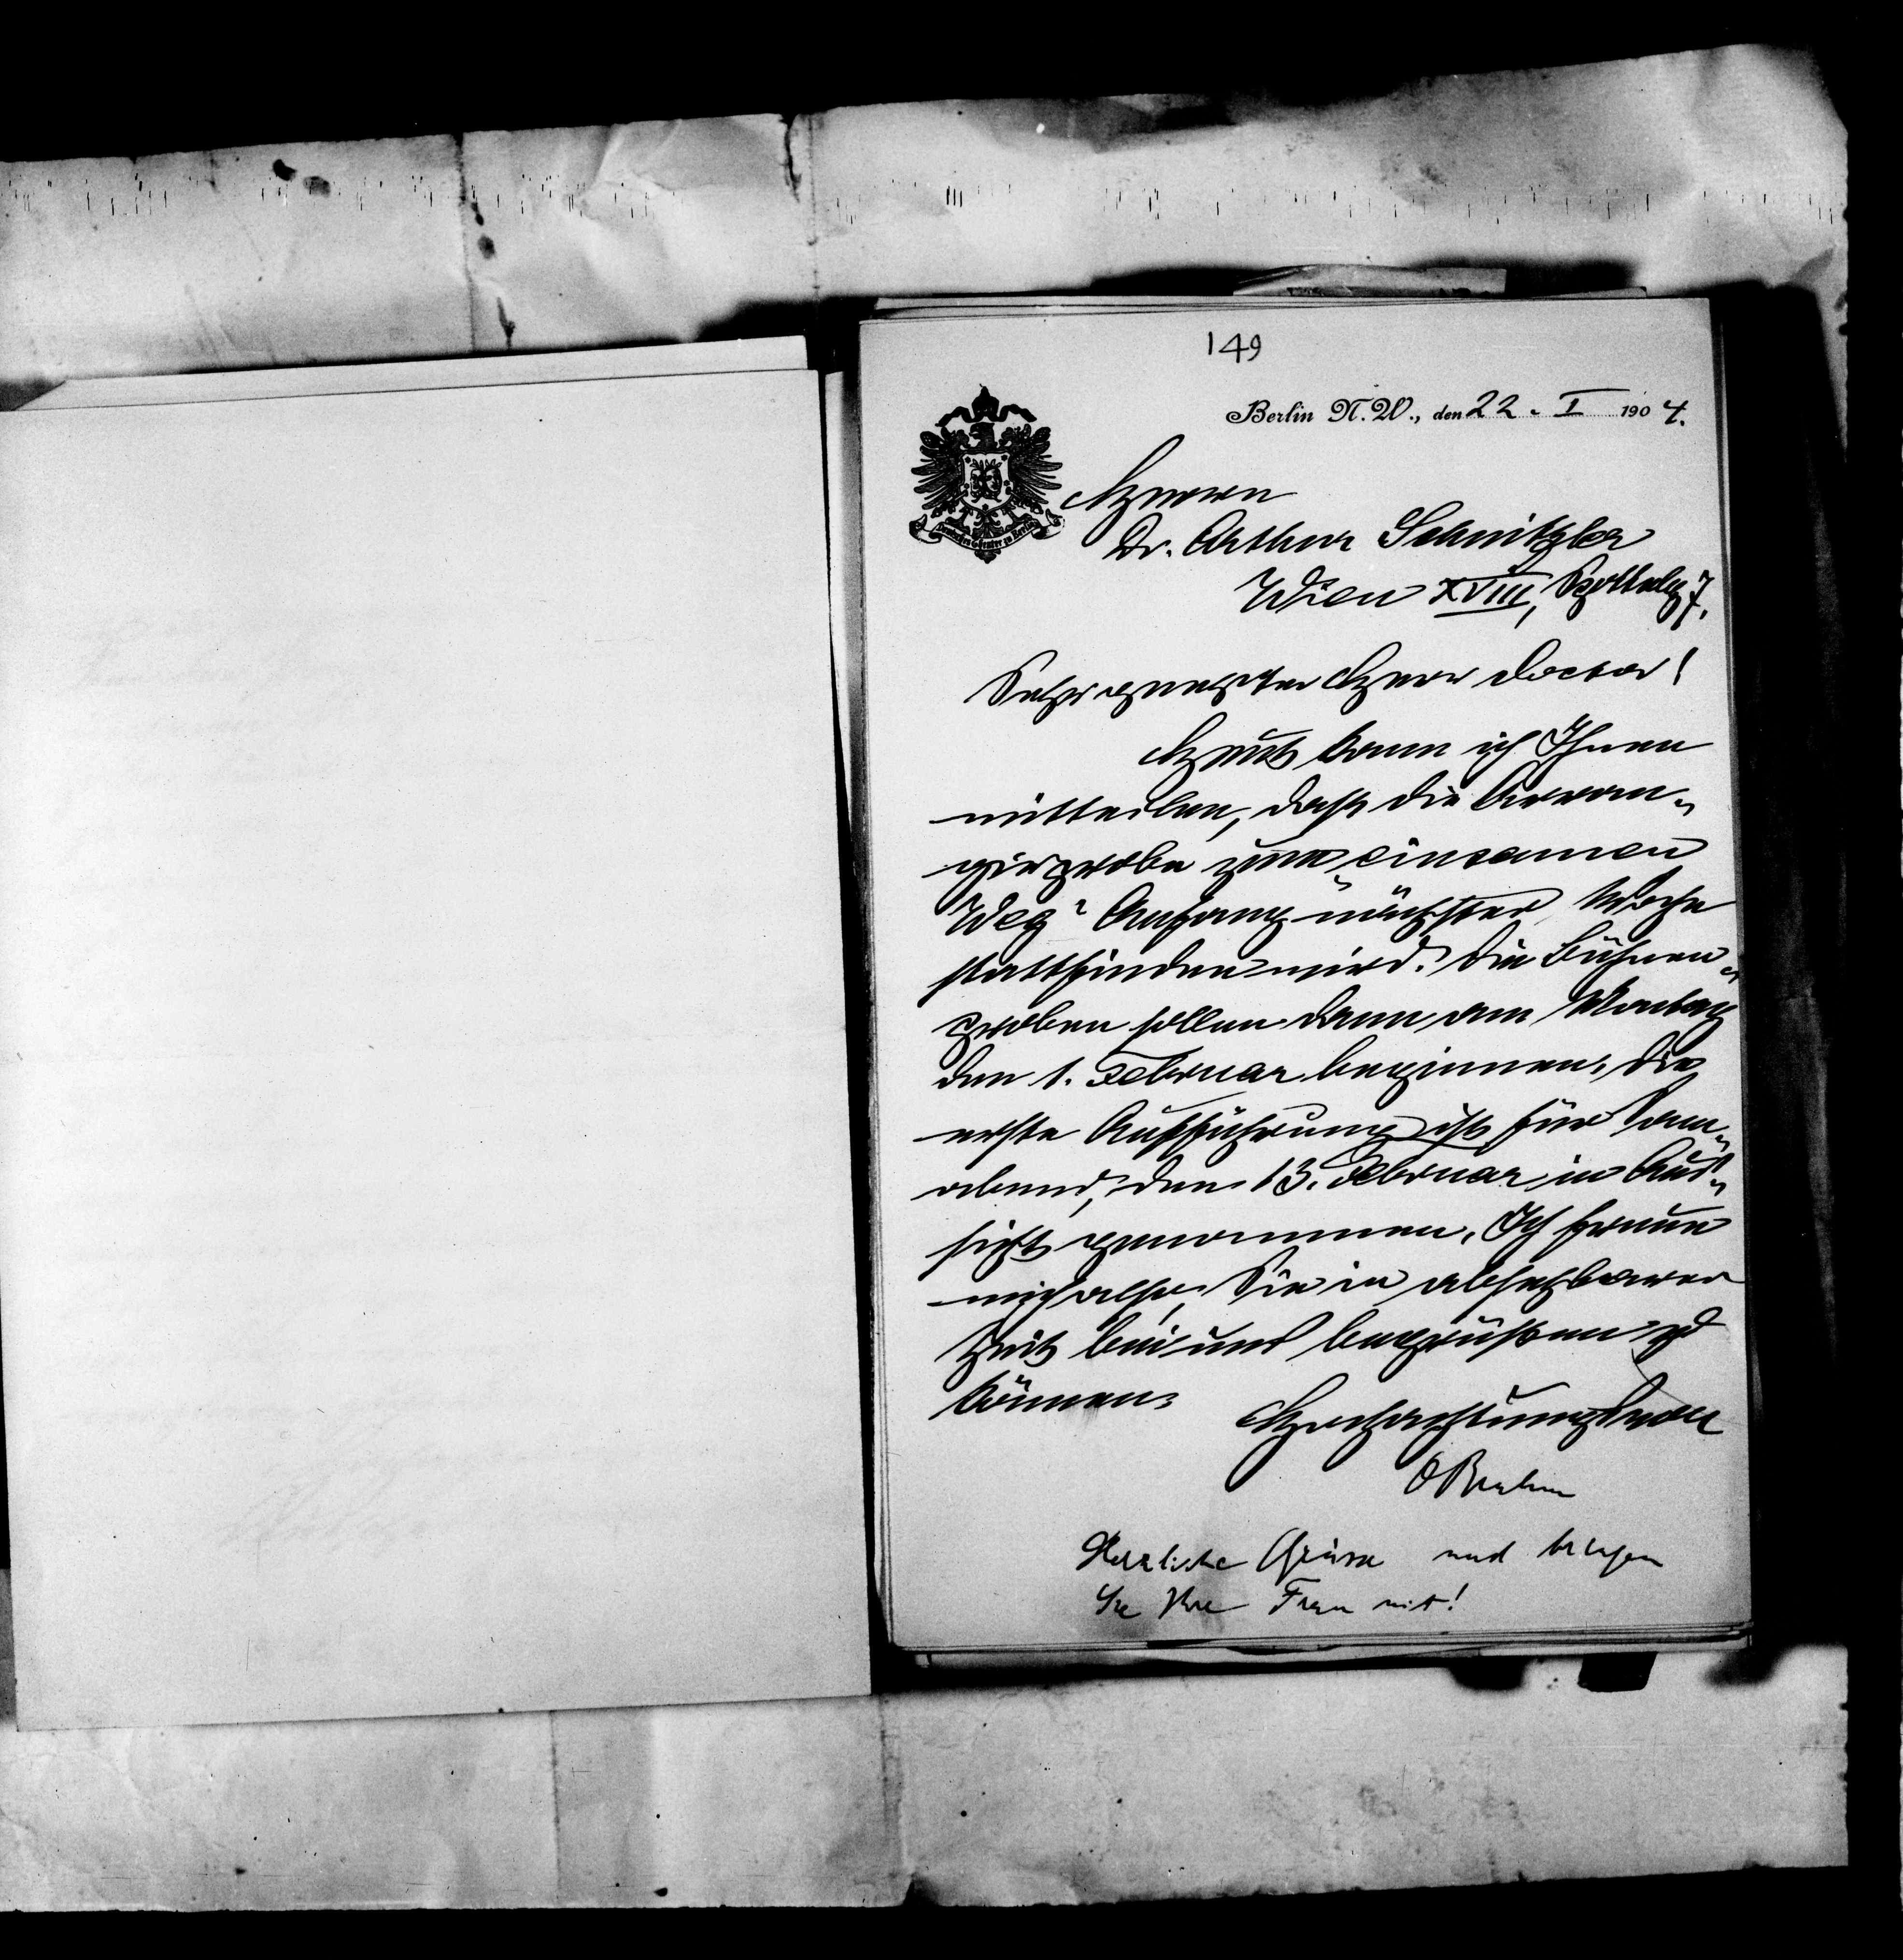 149
Berlin N.W., den 22. I 1904.
Deutsches Theater zu Berlin
Herrn
Dr. Arthur Schnitzler
Wien XVIII, Spöttelg 7.
Sehr geehrter Herr Doctor!
Heut kann ich Ihnen
mitteilen, dass die Arran-
girprobe zum „einsamen
Weg“ Anfang nächster Woche
stattfinden wird. Die Bühnen-
proben sollen dann am Montag
den 1. Februar beginnen, die
erste Aufführung ist für Sonn-
abend, den 13. Februar in Aus-
sicht genommen. Ich freue
mich also, Sie in absehbarer
Zeit bei uns begrüßen zu
können.
Hochachtungsvoll
OBrahm
Herzliche Grüsse und bringen
Sie Ihre Frau mit!